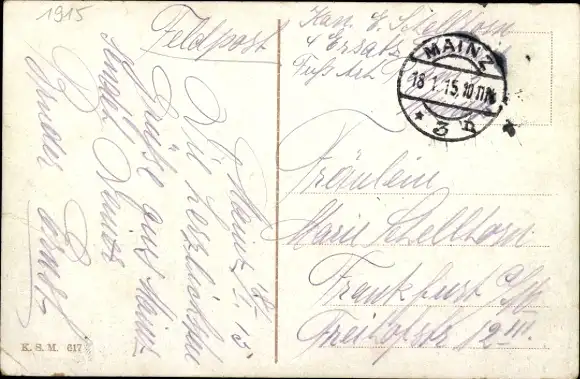 1915
Feldpost
Kan. E. Schellhorn
Ersatz
Fuss Art.
MAINZ
18.1.15. 10-11 N
* 3 n *
Mainz 15
Die herzlichsten
Grüße aus Mainz
sendet Deines
Bruder Ernst
Fräulein
Marie Schellhorn
Frankfurt a/M
12 III.
K. S. M. 617